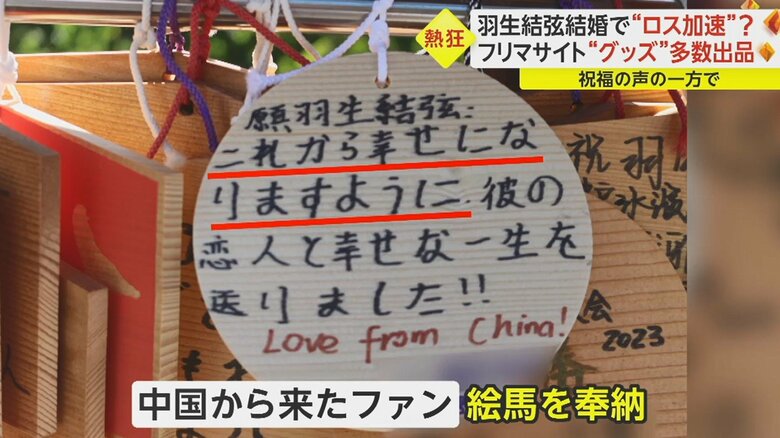 羽生結弦結婚で“ロス加速”?
熱狂
フリマサイト“グッズ”多数出品
祝福の声の一方で
願羽生結弦:
これから幸せにな
りますように.彼の
恋人と幸せな一生を
送りました!!
Love from China!
祝羽
会
2023
中国から来たファン 絵馬を奉納